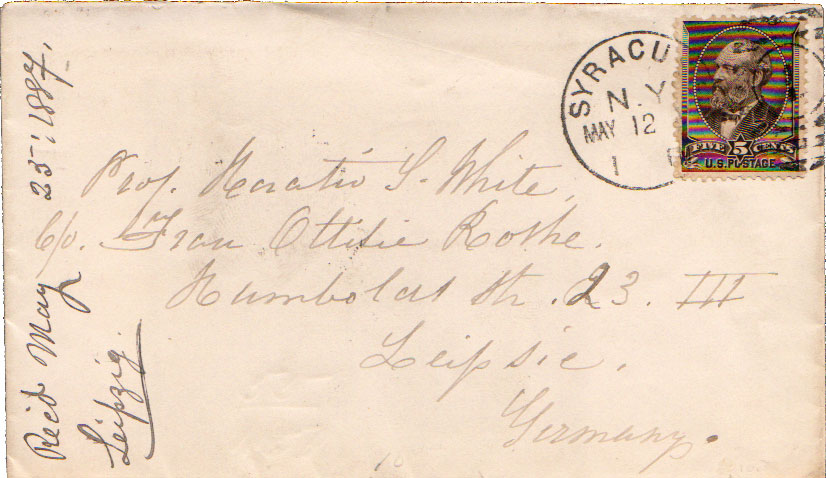 SYRACU
N.Y
MAY 12
1
FIVE 5 CENTS
U.S. POSTAGE
Prof. Horatio S. White,
c/o. Frau Ottilie Rothe.
Humboldt Str. 23. III
Leipsic.
Germany.
Rec'd May 23d: 1887.
Leipzig.